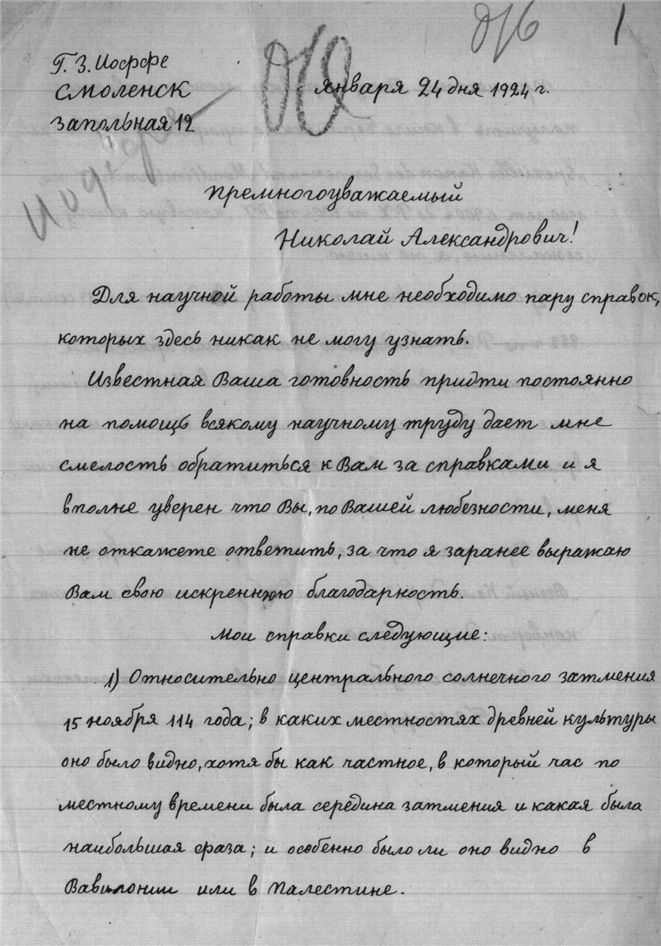 Г. З. Иоффе
Смоленск
Запольная 12
января 24 дня 1924 г.
1
Премногоуважаемый
Николай Александрович!
Для научной работы мне необходимо пару справок,
которых здесь никак не могу узнать.
Известная Ваша готовность придти постоянно
на помощь всякому научному труду дает мне
смелость обратиться к Вам за справками и я
вполне уверен что Вы, по Вашей любезности, меня
не откажете ответить, за что я заранее выражаю
Вам свою искреннюю благодарность.
Мои справки следующие:
1) Относительно центрального солнечного затмения
15 ноября 114 года; в каких местностях древней культуры
оно было видно, хотя бы как частное, в который час по
местному времени была середина затмения и какая была
наибольшая фраза; и особенно было ли оно видно в
Вавилонии или в Палестине.